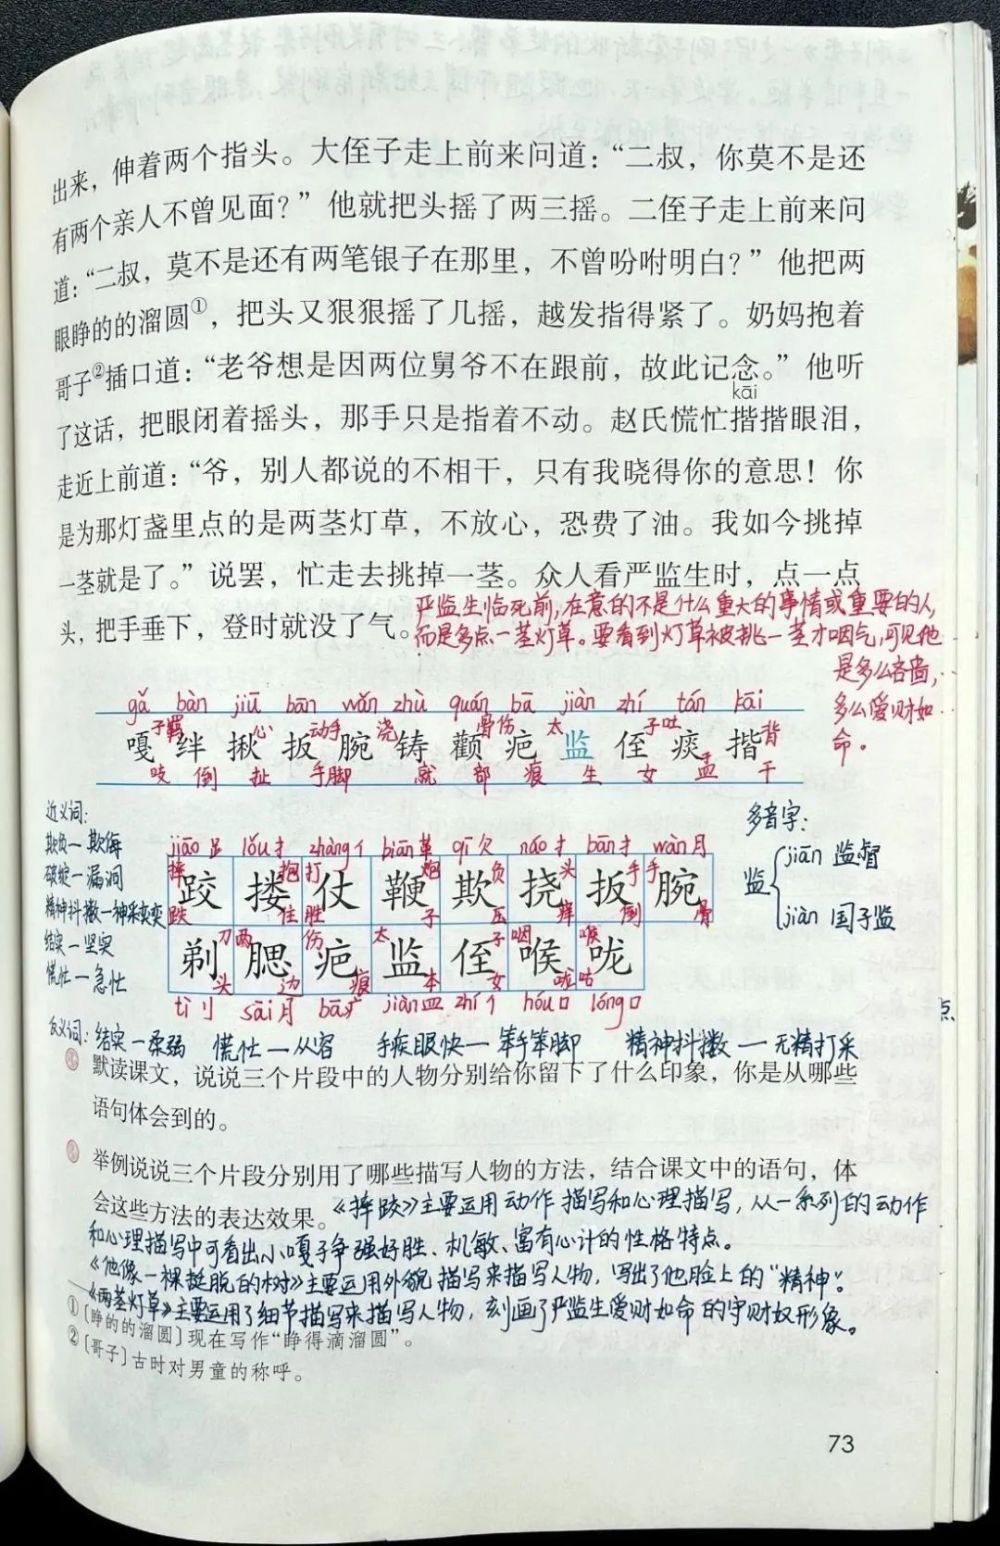 出来，伸着两个指头。大侄子走上前来问道：“二叔，你莫不是还
有两个亲人不曾见面？”他就把头摇了两三摇。二侄子走上前来问
道：“二叔，莫不是还有两笔银子在那里，不曾吩咐明白？”他把两
眼睁的的溜圆①，把头又狠狠摇了几摇，越发指得紧了。奶妈抱着
哥子②插口道：“老爷想是因两位舅爷不在跟前，故此记念。”他听
kāi
了这话，把眼闭着摇头，那手只是指着不动。赵氏慌忙揩揩眼泪，
走近上前道：“爷，别人都说的不相干，只有我晓得你的意思！你
是为那灯盏里点的是两茎灯草，不放心，恐费了油。我如今挑掉
一茎就是了。”说罢，忙走去挑掉一茎。众人看严监生时，点一点
头，把手垂下，登时就没了气。
严监生临死前，在意的不是什么重大的事情或重要的人，
而是多点一茎灯草。要看到灯草被挑一茎才咽气，可见他
是多么吝啬，
多么爱财如
命。
gǎ bàn jiū bān wǎn zhù quán bā jiàn zhí tán kāi
子 羁 心 动手 浇 骨 伤 太 子 吐 背
嘎 绊 揪 扳 腕 铸 颧 疤 监 侄 痰 揩
吱 倒 扯 手脚 就 部 痕 生 女 盂 干
近义词：
欺负—欺侮
破绽—漏洞
精神抖擞—神采奕奕
结实—坚实
慌忙—急忙
多音字：
监
jiān 监督
jiàn 国子监
jiāo 足 lǒu 扌 zhàng 亻 biān 革 qī 欠 náo 扌 bān 扌 wàn 月
摔 抱 打 炮 负 头 手 手
跤 搂 仗 鞭 欺 挠 扳 腕
跌 住 胜 子 压 痒 倒 骨
刀 两 伤 太 子 咽 喉
剃 腮 疤 监 侄 喉 咙
头 边 痕 本 女 咙 咕
tì 刂 sāi 月 bā 疒 jiàn 皿 zhí 亻 hóu 口 lóng 口
反义词：结实—柔弱 慌忙—从容 手疾眼快—笨手笨脚 精神抖擞—无精打采
默读课文，说说三个片段中的人物分别给你留下了什么印象，你是从哪些
语句体会到的。
举例说说三个片段分别用了哪些描写人物的方法，结合课文中的语句，体
会这些方法的表达效果。
《摔跤》主要运用动作描写和心理描写，从一系列的动作
和心理描写中可看出小嘎子争强好胜、机敏、富有心计的性格特点。
《他像一棵挺脱的树》主要运用外貌描写来描写人物，写出了他脸上的“精神”。
《两茎灯草》主要运用了细节描写来描写人物，刻画了严监生爱财如命的守财奴形象。
①〔睁的的溜圆〕现在写作“睁得滴溜圆”。
②〔哥子〕古时对男童的称呼。
73